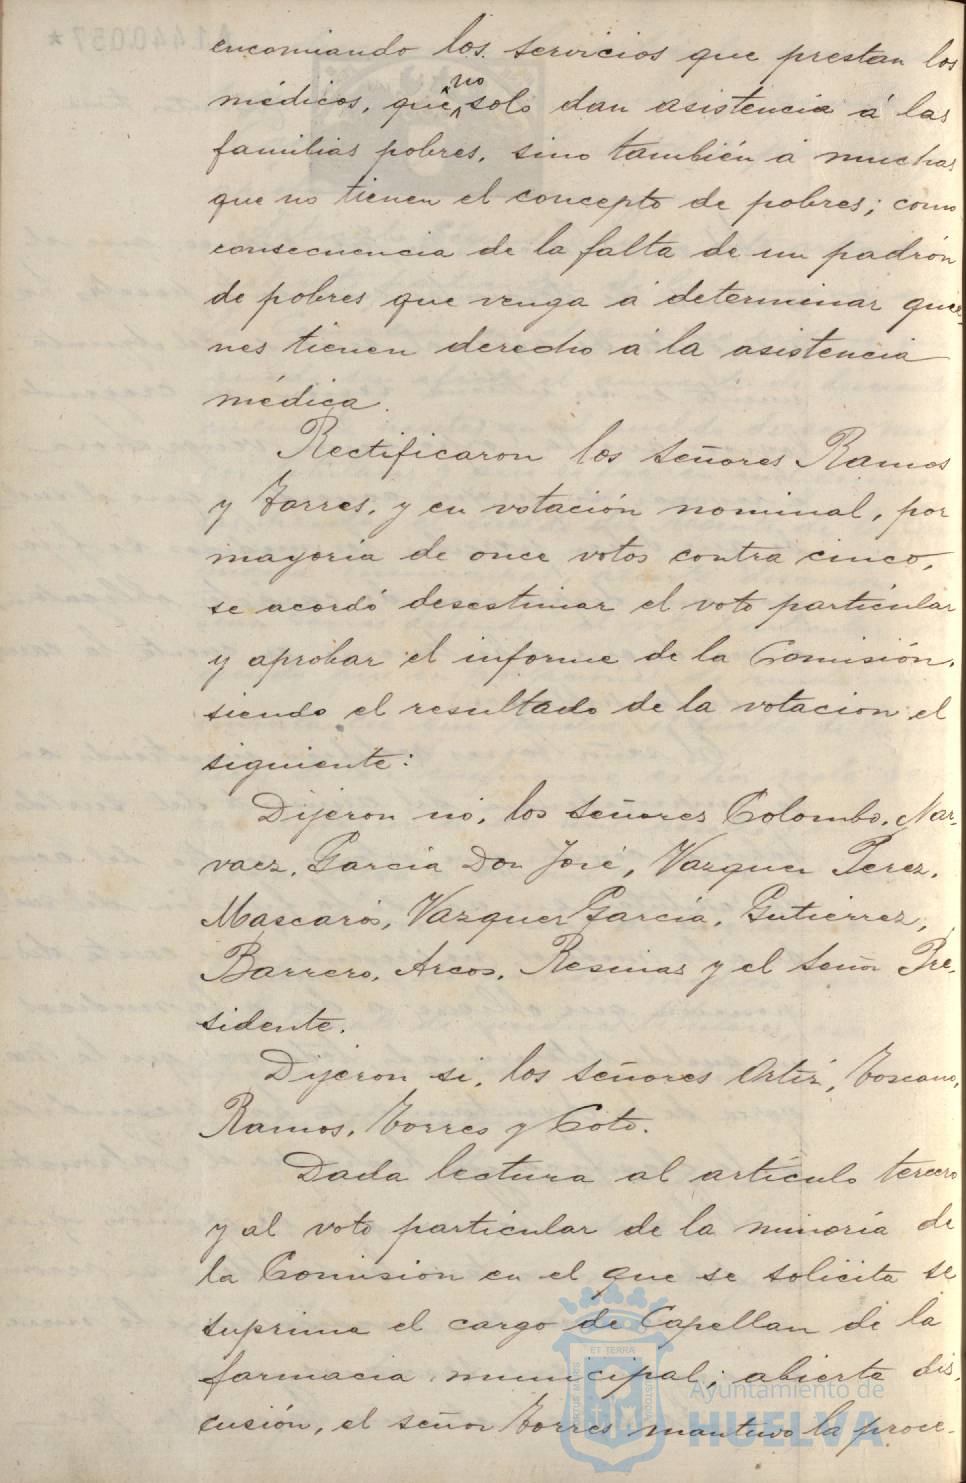 encomiando los servicios que prestan los
médicos, que no solo dan asistencia á las
familias pobres, sino también á muchas
que no tienen el concepto de pobres; como
consecuencia de la falta de un padrón
de pobres que venga á determinar quie-
nes tienen derecho á la asistencia
médica.
Rectificaron los señores Ramos
y Torres, y en votación nominal, por
mayoria de once votos contra cinco,
se acordó desestimar el voto particular
y aprobar el informe de la Comisión,
siendo el resultado de la votación el
siguiente:
Dijeron nó, los señores Colombo, Nar-
vaez, García Don José, Vazquez Perez,
Mascarós, Vazquez García, Gutierrez,
Barrero, Arcos, Resinas y el señor Pre-
sidente.
Dijeron si, los señores Ortiz, Toscano,
Ramos, Torres y Coto.
Dada lectura al artículo tercero
y al voto particular de la minoría de
la Comisión en el que se solicita se
suprima el cargo de Capellan de la
farmacia municipal; abierta dis-
cusión, el señor Torres mantuvo la proce-
ET TERRA
Ayuntamiento de
HUELVA